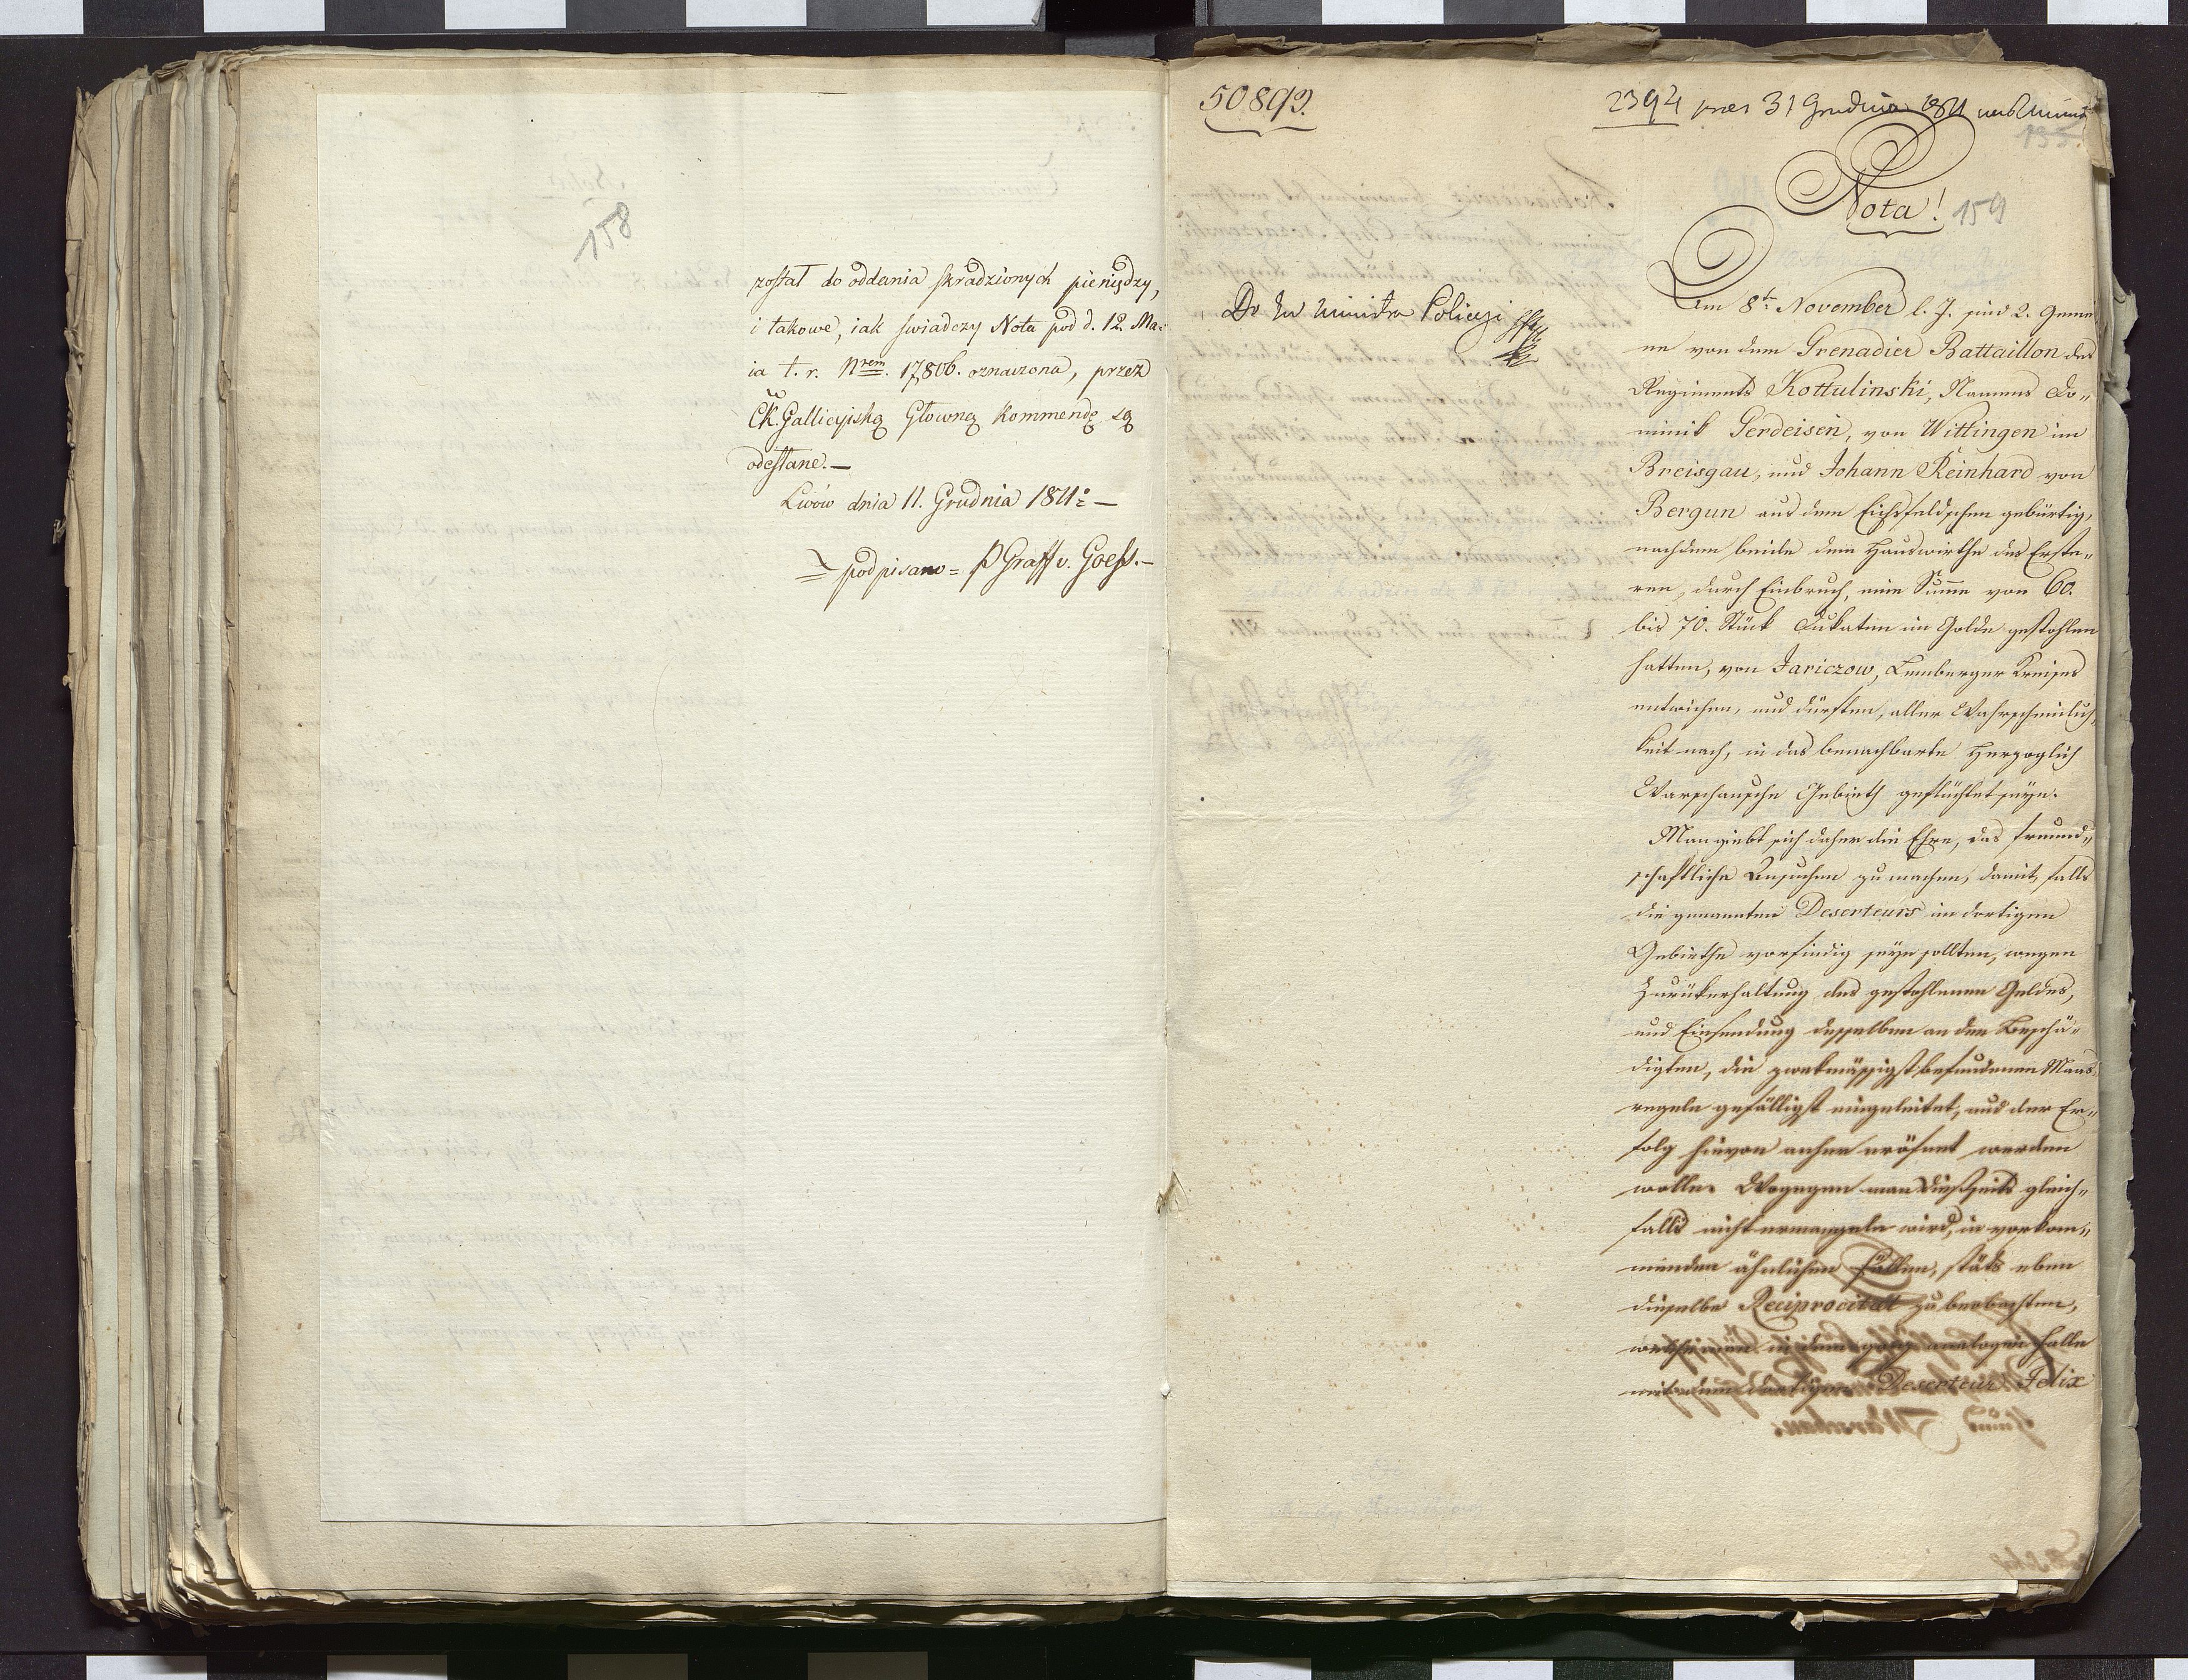 158
został do oddania skradzionych pieniędzy,
i takowe, iak swiadczy Nota pod d. 12. Ma-
ia t. r. Nrem. 17,806. oznaczona, przez
CK. Gallicyiską Głowną Kommendę są
odesłane.—
Lwów dnia 11. Grudnia 1811: —
= podpisano = P Graff v. Goess. —
50892.
2394 pres 31 Grudnia 1811
135.
Nota!
159
Do Jw Ministra Policyi
Am 8ten November l. J. sind 2. Gemei
ne von dem Grenadier Battaillon des
Regiments Kottulinski, Namens Do„
minik Gerdeisen, von Wittingen im
Breisgau, und Johann Reinhard von
Bergun aus dem Eichsfeldschen gebürtig,
nachdem beide dem Hauswirthe des Erste„
ren, durch Einbruch, eine Summe von 60.
bis 70. Stück Dukaten im Golde gestohlen
hatten, von Jariczow, Lemberger Kreises
entwichen, und dürften, aller Wahrscheinlich„
keit nach, in das benachbarte Herzoglich
Warschausche Gebieth geflüchtet seyn.
Man giebt sich daher die Ehre, das freund„
schaftliche Ansuchen zu machen, damit, falls
die genannten Deserteurs im dortigen
Gebiethe vorfindig seyn sollten, wegen
Zurückerhaltung des gestohlenen Geldes,
und Einsendung desselben an den Beschä„
digten, die zwekmässigst befundenen Maas
regeln gefälligst eingeleitet, und der Er„
folg hievon anher eröfnet werden
wolle. Wogegen man dießseits gleich„
falls nicht ermangeln wird, in vorkom„
menden ähnlichen Fällen, stäts eben
dieselbe Reciprocität zu beobachten,
welche man in dem ganz analogen Falle
mit dem dortigen Deserteur Felix